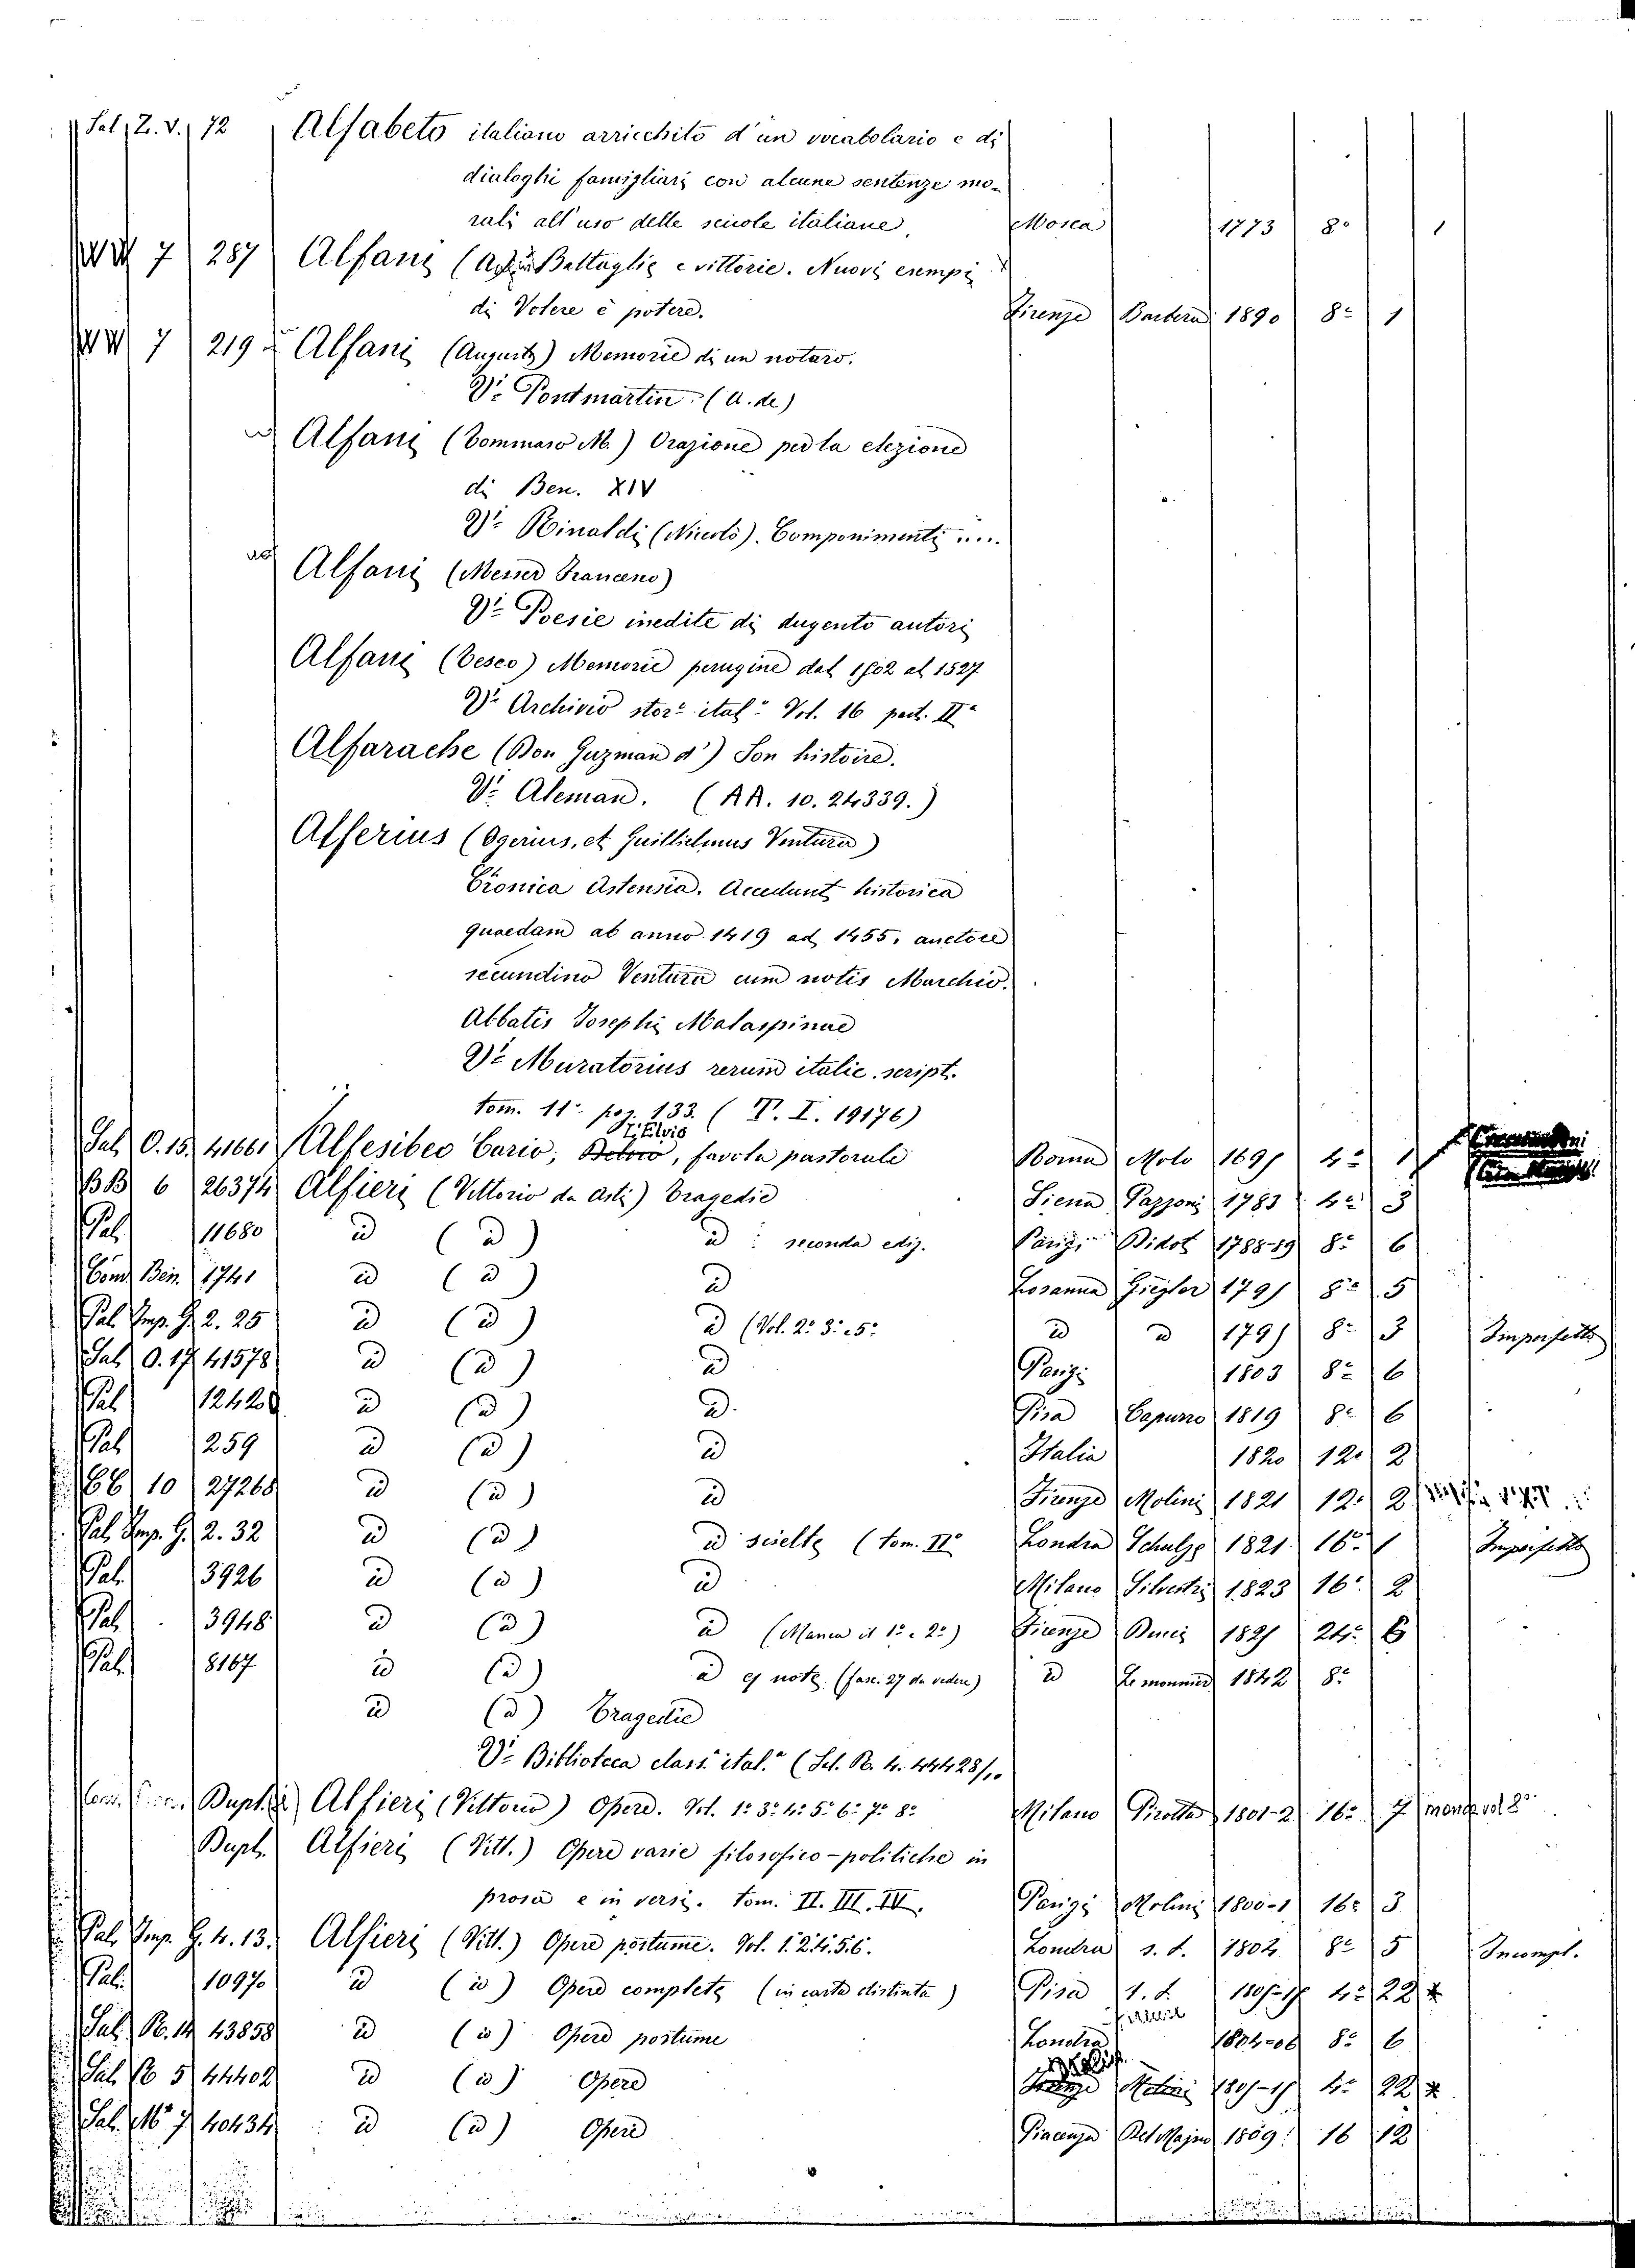 Sal. Z. V. 72 Alfabeto italiano arricchito d'un vocabolario e di
dialoghi famigliari con alcune sentenze mo-
rali all'uso delle scuole italiane. Mosca 1773 8° 1
WW 7 287 Alfani (Aug.) Battaglie e vittorie. Nuovi esempi
di Volere è potere. Firenze Barbera 1890 8° 1
WW 7 219 Alfani (Augusto) Memorie di un notaro.
V. Pontmartin (A. de)
Alfani (Tommaso M.) Orazione per la elezione
di Ben. XIV
V. Rinaldi (Nicolò). Componimenti ....
Alfani (Messer Francesco)
V. Poesie inedite di dugento autori
Alfani (Teseo) Memorie perugine dal 1502 al 1527
V. Archivio stor. ital. Vol. 16 part. II
Alfarache (Don Guzman d') Son histoire.
V. Aleman. (AA. 10. 24339.)
Alferius (Ogerius, et Guillielmus Ventura)
Cronica Astensia. Accedunt historica
quaedam ab anno 1419 ad 1455, auctore
secundino Ventura cum notis Marchio.
Abbatis Josephi Malaspinae
V. Muratorius rerum italic. script.
tom. 11 pag. 133. (T. I. 19176)
L'Elvio
Sal. O. 15. 41661 Alfesibeo Cario; , favola pastorale Roma Molo 4° 1
BB 6 26374 Alfieri (Vittorio da Asti) Tragedie Siena Pazzoni 1783 4° 3
Pal. 11680 id (id) id : seconda ediz. Parigi Didot 1788-89 8° 6
Cons. Ben. 1741 id (id) id Losanna Ziegler 179 8° 5
Pal. Imp. G. 2. 25 id (id) id (Vol. 2° 3° e 5° id id 179 8° 3 Imperfetto
Sal. O. 17 41578 id (id) id Parigi 1803 8° 6
Pal. 12420 id (id) id. Pisa Capurro 1819 8° 6
Pal. 259 id (id) id Italia 1820 12° 2
10 27268 id (id) id Firenze Molini 1821 12° 2
Pal. Imp. G. 2. 32 id (id) id scielte (tom. II° Londra Schulze 1821 16° 1 Imperfetto
Pal. 3926 id (id) id Milano Silvestri 1823 16° 2
Pal. 3948 id (id) id (Manca il 1° e 2°) Firenze Bucci 182 24° 6
Pal. 8167 id (id) id e note (fasc. 27 da vedere) id Le monnier 1842 8°
id (id) Tragedie
V. Biblioteca class. ital. (Sal. R. 4. 44428/
Dupl. Alfieri (Vittorio) Opere. Vol. 1° 3° 4° 5° 6° 7° 8° Milano Pirotta 1801-2 16° 7 manca vol 2°
Dupl. Alfieri (Vitt.) Opere varie filosofico-politiche in
prosa e in versi. tom. II. III. IV. Parigi Molini 1800-1 16° 3
Pal. Imp. G. 4. 13. Alfieri (Vitt.) Opere postume. Vol. 1. 2. 4. 5. 6. Londra s. t. 1804 8° 5 Incompl.
Pal. 10970 id (id) Opere complete (in carta distinta) Pisa 4° 22
Sal. R. 14 43858 id (id) Opere postume Londra 1804-08 8° 6
Sal. R 5 44402 id (id) Opere Molini 4° 22
Sal. M 7 40434 id (id) Opere Piacenza Del Majno 1809 16 12